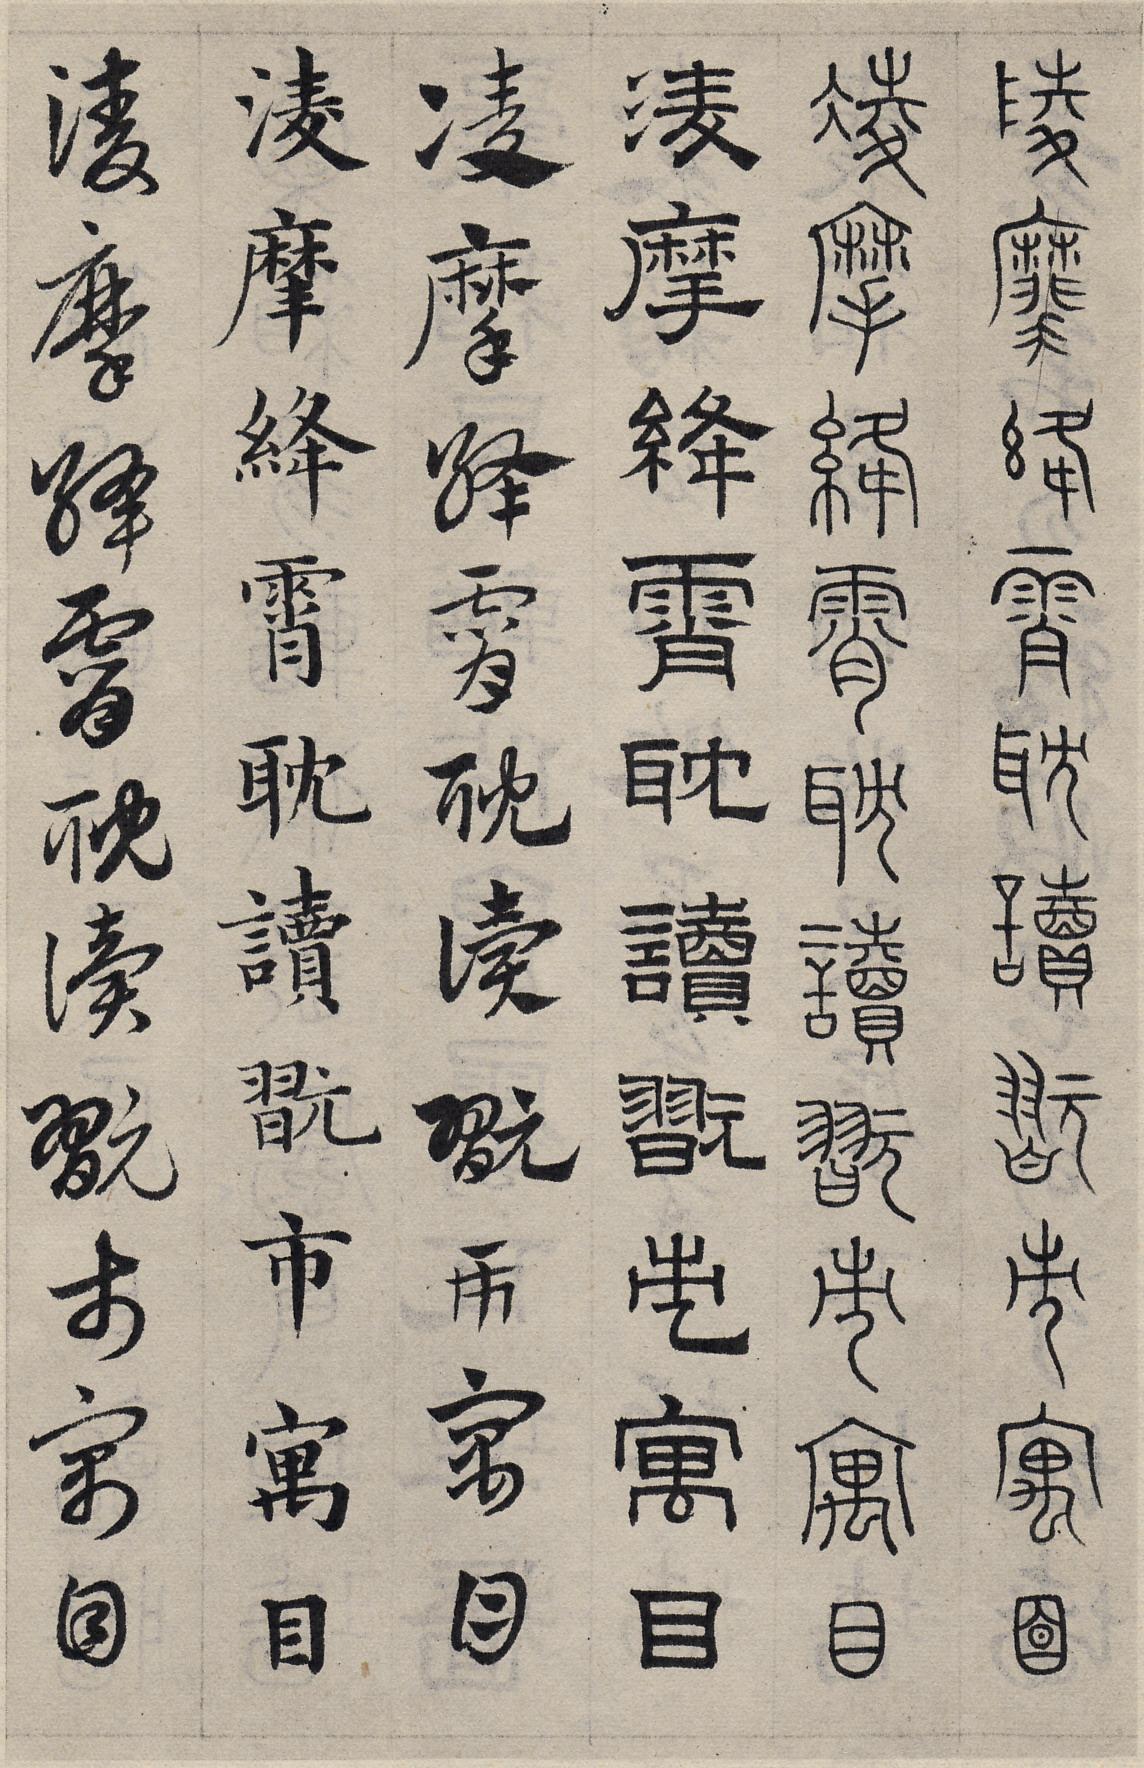 陵靡絳霄耽讀翫市寓目
凌摩絳霄耽讀翫市寓目
淩摩絳霄耽讀翫市寓目
凌摩絳霄耽讀翫市寓目
淩摩絳霄耽讀翫市寓目
淩摩絳霄耽讀翫市寓目